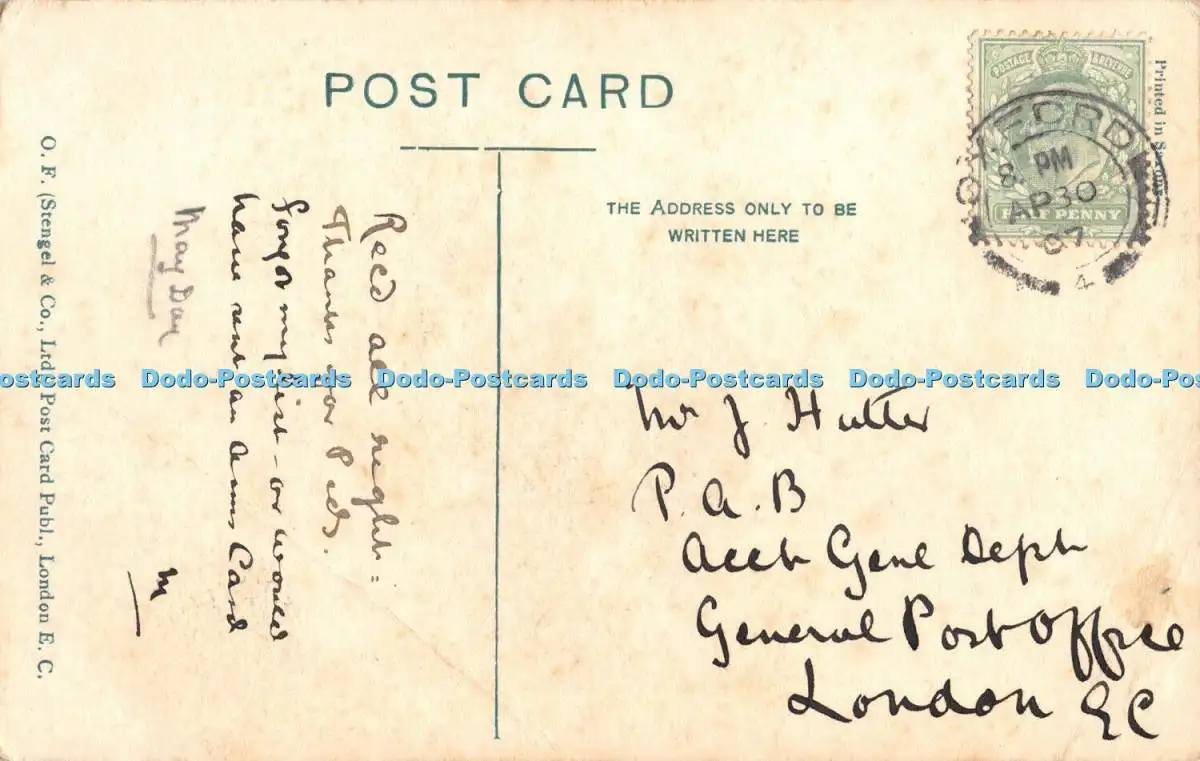 POST CARD
THE ADDRESS ONLY TO BE
WRITTEN HERE
POSTAGE & REVENUE
HALF PENNY
8 PM
AP 30
07
4
Printed in Saxony
O. F. (Stengel & Co., Ltd.) Post Card Publ., London E. C.
Rec'd all right:
Thanks for P cds.
Forgot my list - or would
have sent an Arms Card
M
May Day
Mr J. Hutter
P. A. B
Acct Genl Dept
General Post Office
London EC
ostcards Dodo-Postcards Dodo-Postcards Dodo-Postcards Dodo-Postcards Dodo-Pos